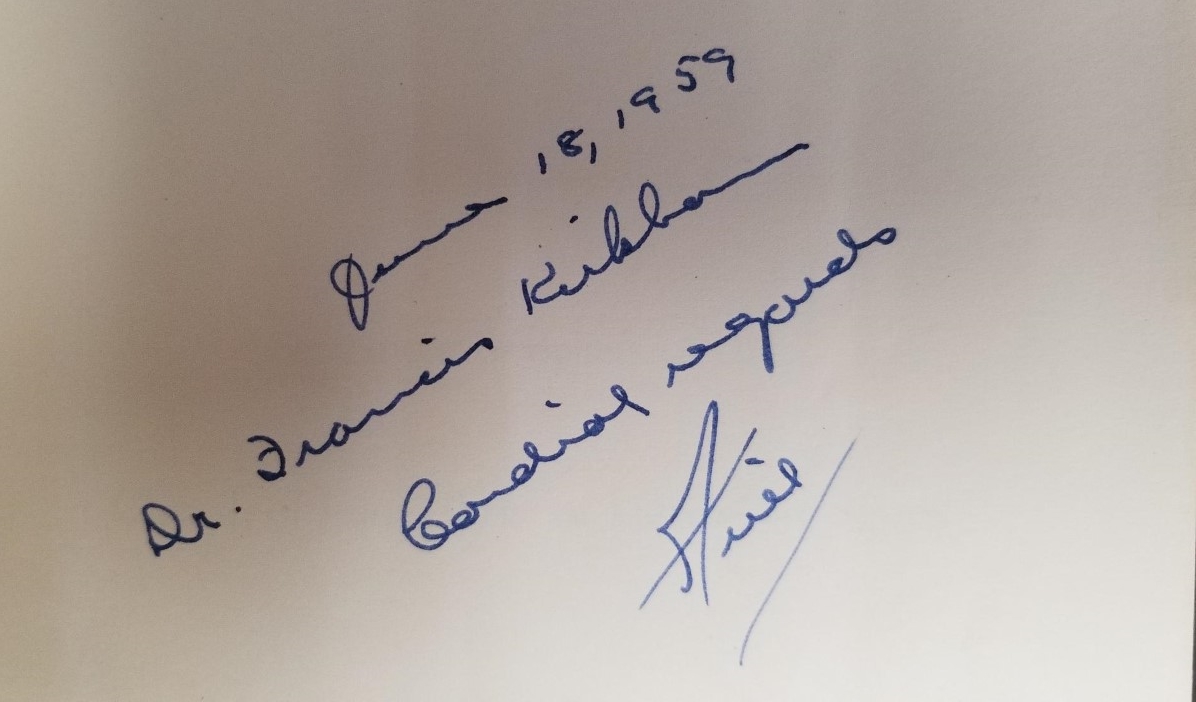 June 18, 1959
Dr. Francis Kirkham
Cordial regards